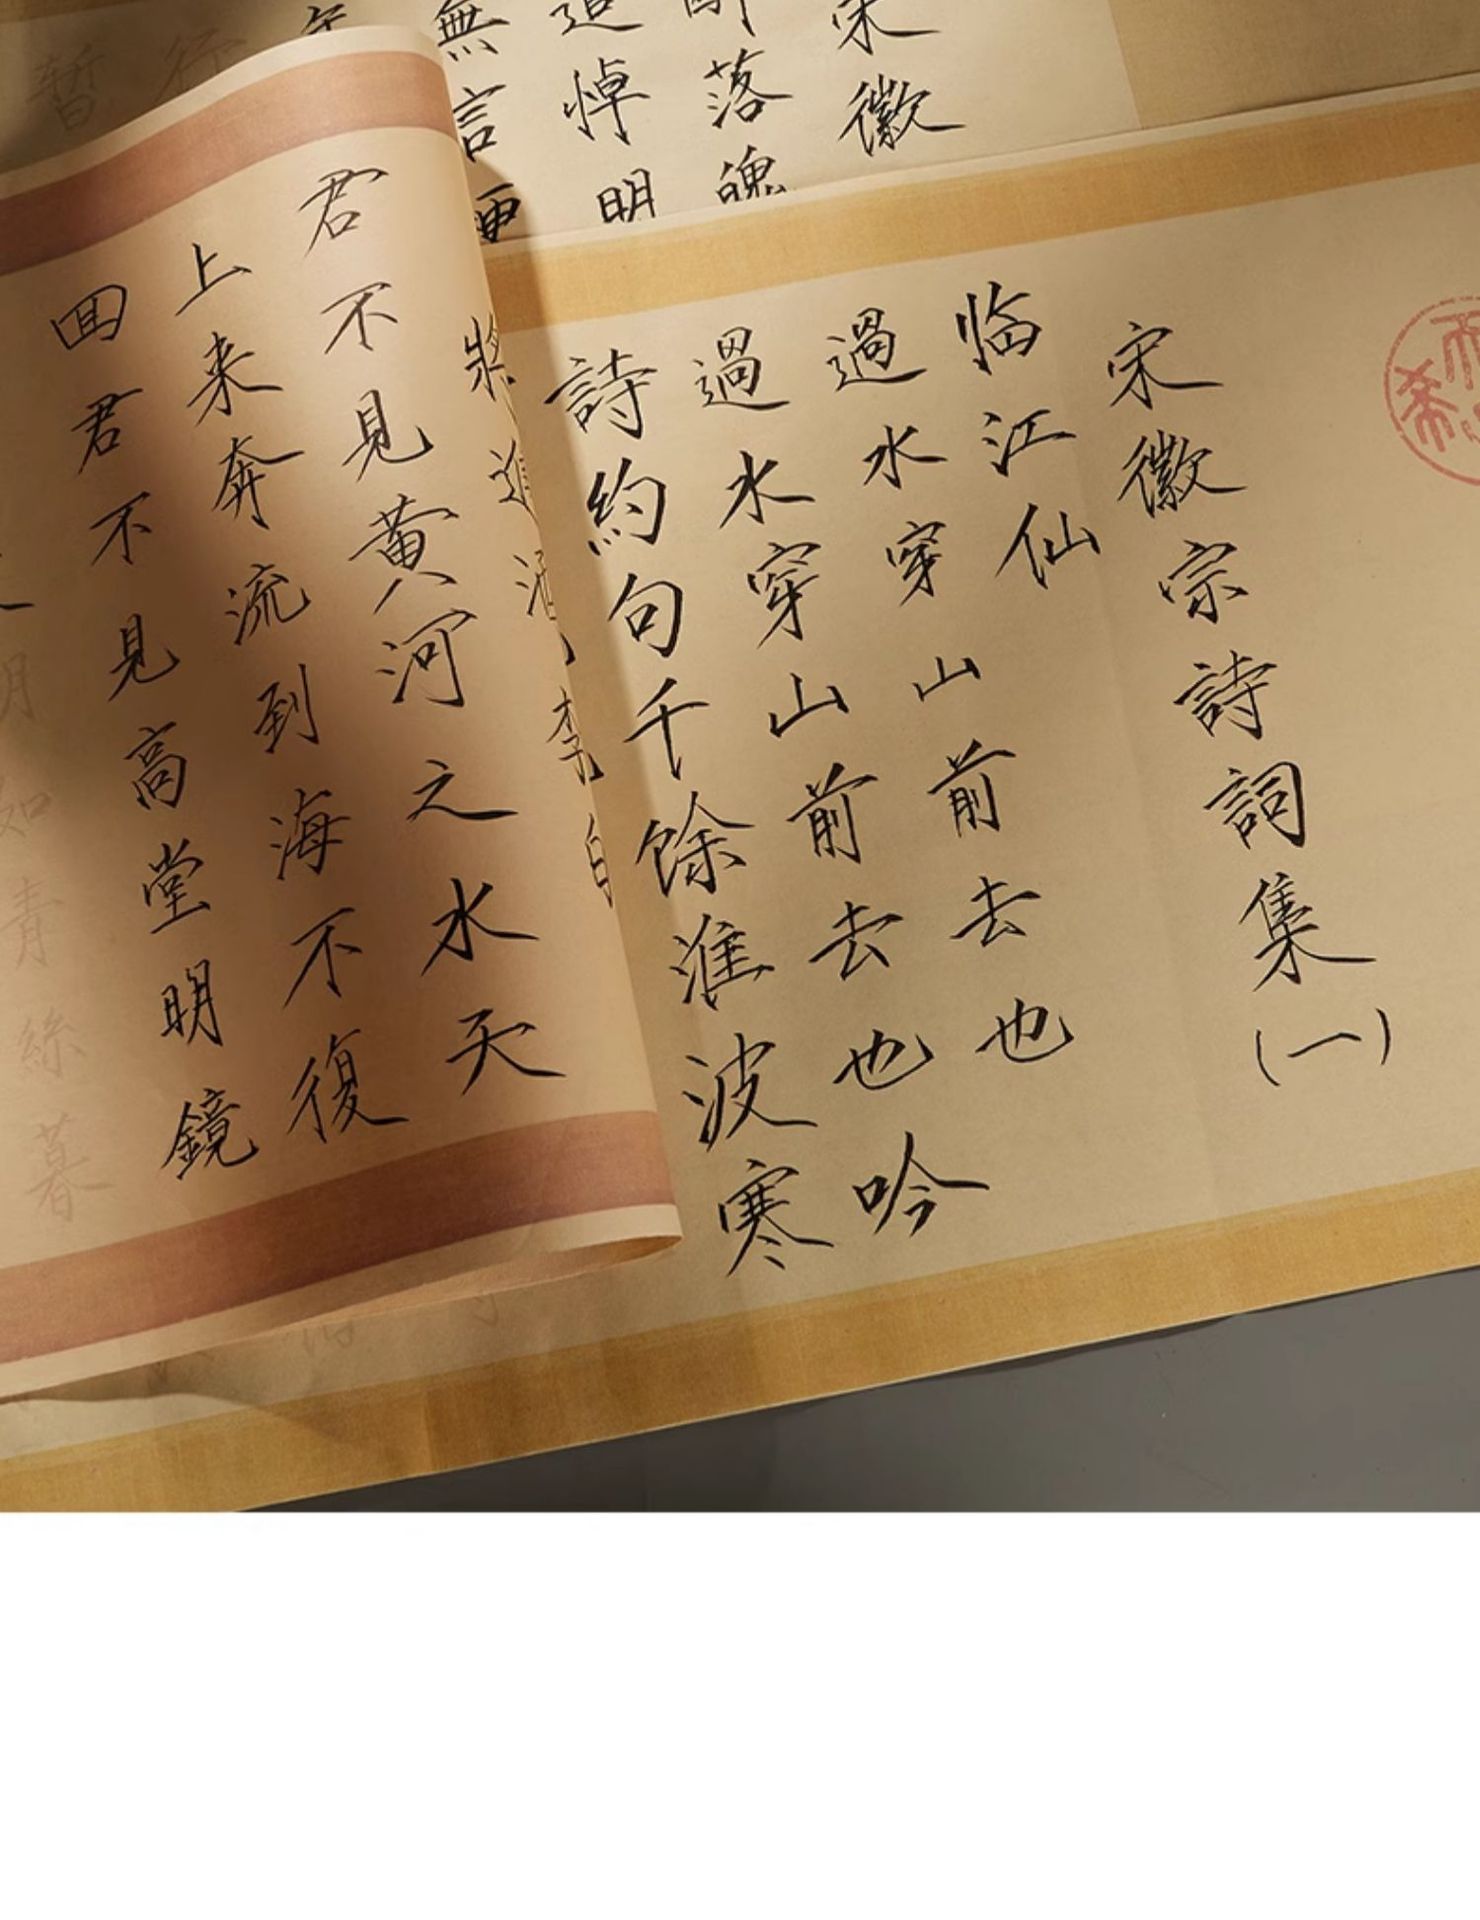 宋徽宗詩詞集(一)
临江仙
過水穿山前去也
過水穿山前去也吟
詩約句千餘淮波寒
將進酒 李白
君不見黃河之水天
上来奔流到海不復
回君不見高堂明鏡
明如青絲暮
宋徽
落魄
追悼明
無言更
行
暫